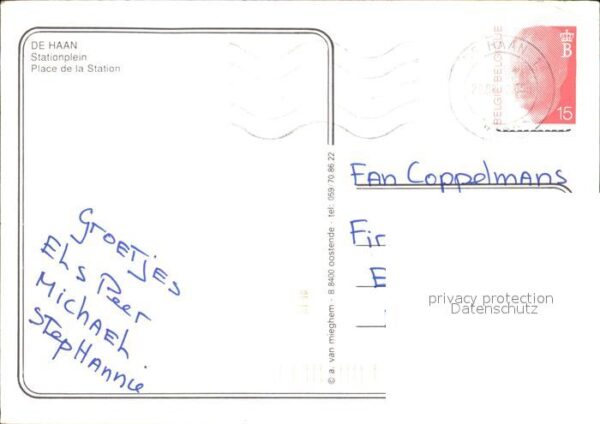 DE HAAN
Stationplein
Place de la Station
DE HAAN 1
BELGIË-BELGIQUE
B
15
Groetjes
Els Peer
Michaël
Stephannie
© a. van mieghem - B 8400 oostende - tel: 059/70.86.22
Fan Coppelmans
Fir
E
privacy protection
Datenschutz